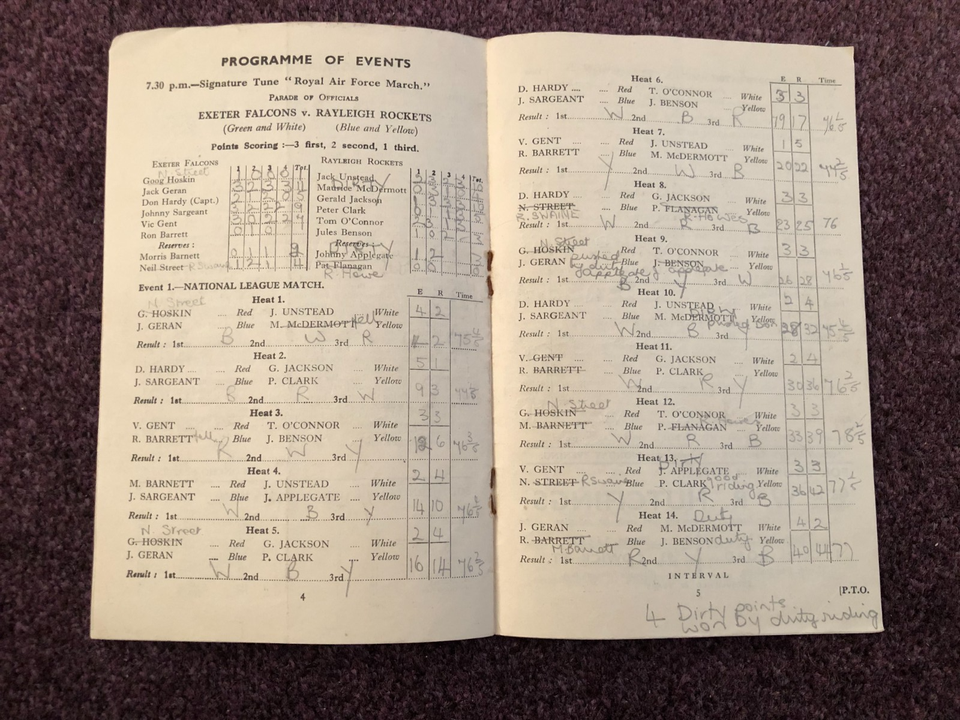 PROGRAMME OF EVENTS
7.30 p.m.—Signature Tune "Royal Air Force March."
PARADE OF OFFICIALS
EXETER FALCONS v. RAYLEIGH ROCKETS
(Green and White) (Blue and Yellow)
Points Scoring :—3 first, 2 second, 1 third.
EXETER FALCONS 1 2 3 4 Tot.
N. Street
Goog Hoskin
Jack Geran
Don Hardy (Capt.)
Johnny Sargeant
Vic Gent
Ron Barrett
Reserves :
Morris Barnett
Neil Street R Swaine
RAYLEIGH ROCKETS 1 2 3 4 Tot.
Jack Unstead
Maurice McDermott
Gerald Jackson
Peter Clark
Tom O'Connor
Jules Benson
Reserves :
Johnny Applegate
Pat Flanagan
R. Howe
Event 1.—NATIONAL LEAGUE MATCH.
E R Time
N Street
Heat 1.
G. HOSKIN ... Red J. UNSTEAD White 4 2
J. GERAN ... Blue M. McDERMOTT Yellow
Result : 1st B 2nd W 3rd R
Heat 2.
D. HARDY ... Red G. JACKSON White 5 1
J. SARGEANT ... Blue P. CLARK Yellow
Result : 1st B 2nd R 3rd W 9 3
Heat 3.
V. GENT ... Red T. O'CONNOR White 3 3
R. BARRETT fell Blue J. BENSON Yellow
Result : 1st R 2nd W 3rd Y 6 76 3/5
Heat 4.
M. BARNETT ... Red J. UNSTEAD White 2 4
J. SARGEANT ... Blue J. APPLEGATE Yellow
Result : 1st W 2nd B 3rd Y 14 10
N Street Heat 5.
G. HOSKIN ... Red G. JACKSON White 2 4
J. GERAN ... Blue P. CLARK Yellow
Result : 1st W 2nd B 3rd Y 16 14 76 2/5
4
E R Time
Heat 6.
D. HARDY ... Red T. O'CONNOR White 3 3
J. SARGEANT ... Blue J. BENSON Yellow
Result : 1st W 2nd B 3rd R 19 17 76 1/5
Heat 7.
V. GENT ... Red J. UNSTEAD White 1 5
R. BARRETT ... Blue M. McDERMOTT Yellow
Result : 1st Y 2nd W 3rd B 20 22
Heat 8.
D. HARDY ... Red G. JACKSON White 3 3
N. STREET ... Blue P. FLANAGAN Yellow
R. SWAINE
Result : 1st W 2nd R 3rd B 23 25 76
N Street Heat 9.
G. HOSKIN ... Red T. O'CONNOR White 3 3
J. GERAN Blue J. BENSON Yellow
Result : 1st B 2nd Y 3rd W 26 28 76 1/5
Heat 10.
D. HARDY ... Red J. UNSTEAD White 2 4
J. SARGEANT ... Blue M. McDERMOTT Yellow
Result : 1st W 2nd B 3rd Y 28 32
Heat 11.
V. GENT ... Red G. JACKSON White 2 4
R. BARRETT ... Blue P. CLARK Yellow
Result : 1st W 2nd R 3rd Y 30 36 76 2/5
N Street Heat 12.
G. HOSKIN ... Red T. O'CONNOR White 3 3
M. BARNETT ... Blue P. FLANAGAN Yellow
Result : 1st W 2nd R 3rd B 33 39 78 2/5
Heat 13. Dirty
V. GENT ... Red J. APPLEGATE White 3 3
N. STREET R Swaine Blue P. CLARK riding Yellow
Result : 1st Y 2nd R 3rd B 36 42 77 1/5
Heat 14. Duty
J. GERAN ... Red M. McDERMOTT White 4 2
R. BARRETT ... Blue J. BENSON duty Yellow
M. Barnett
Result : 1st R 2nd Y 3rd B 40 44 77
INTERVAL
5 [P.T.O.
4 Dirty points
won by dirty riding